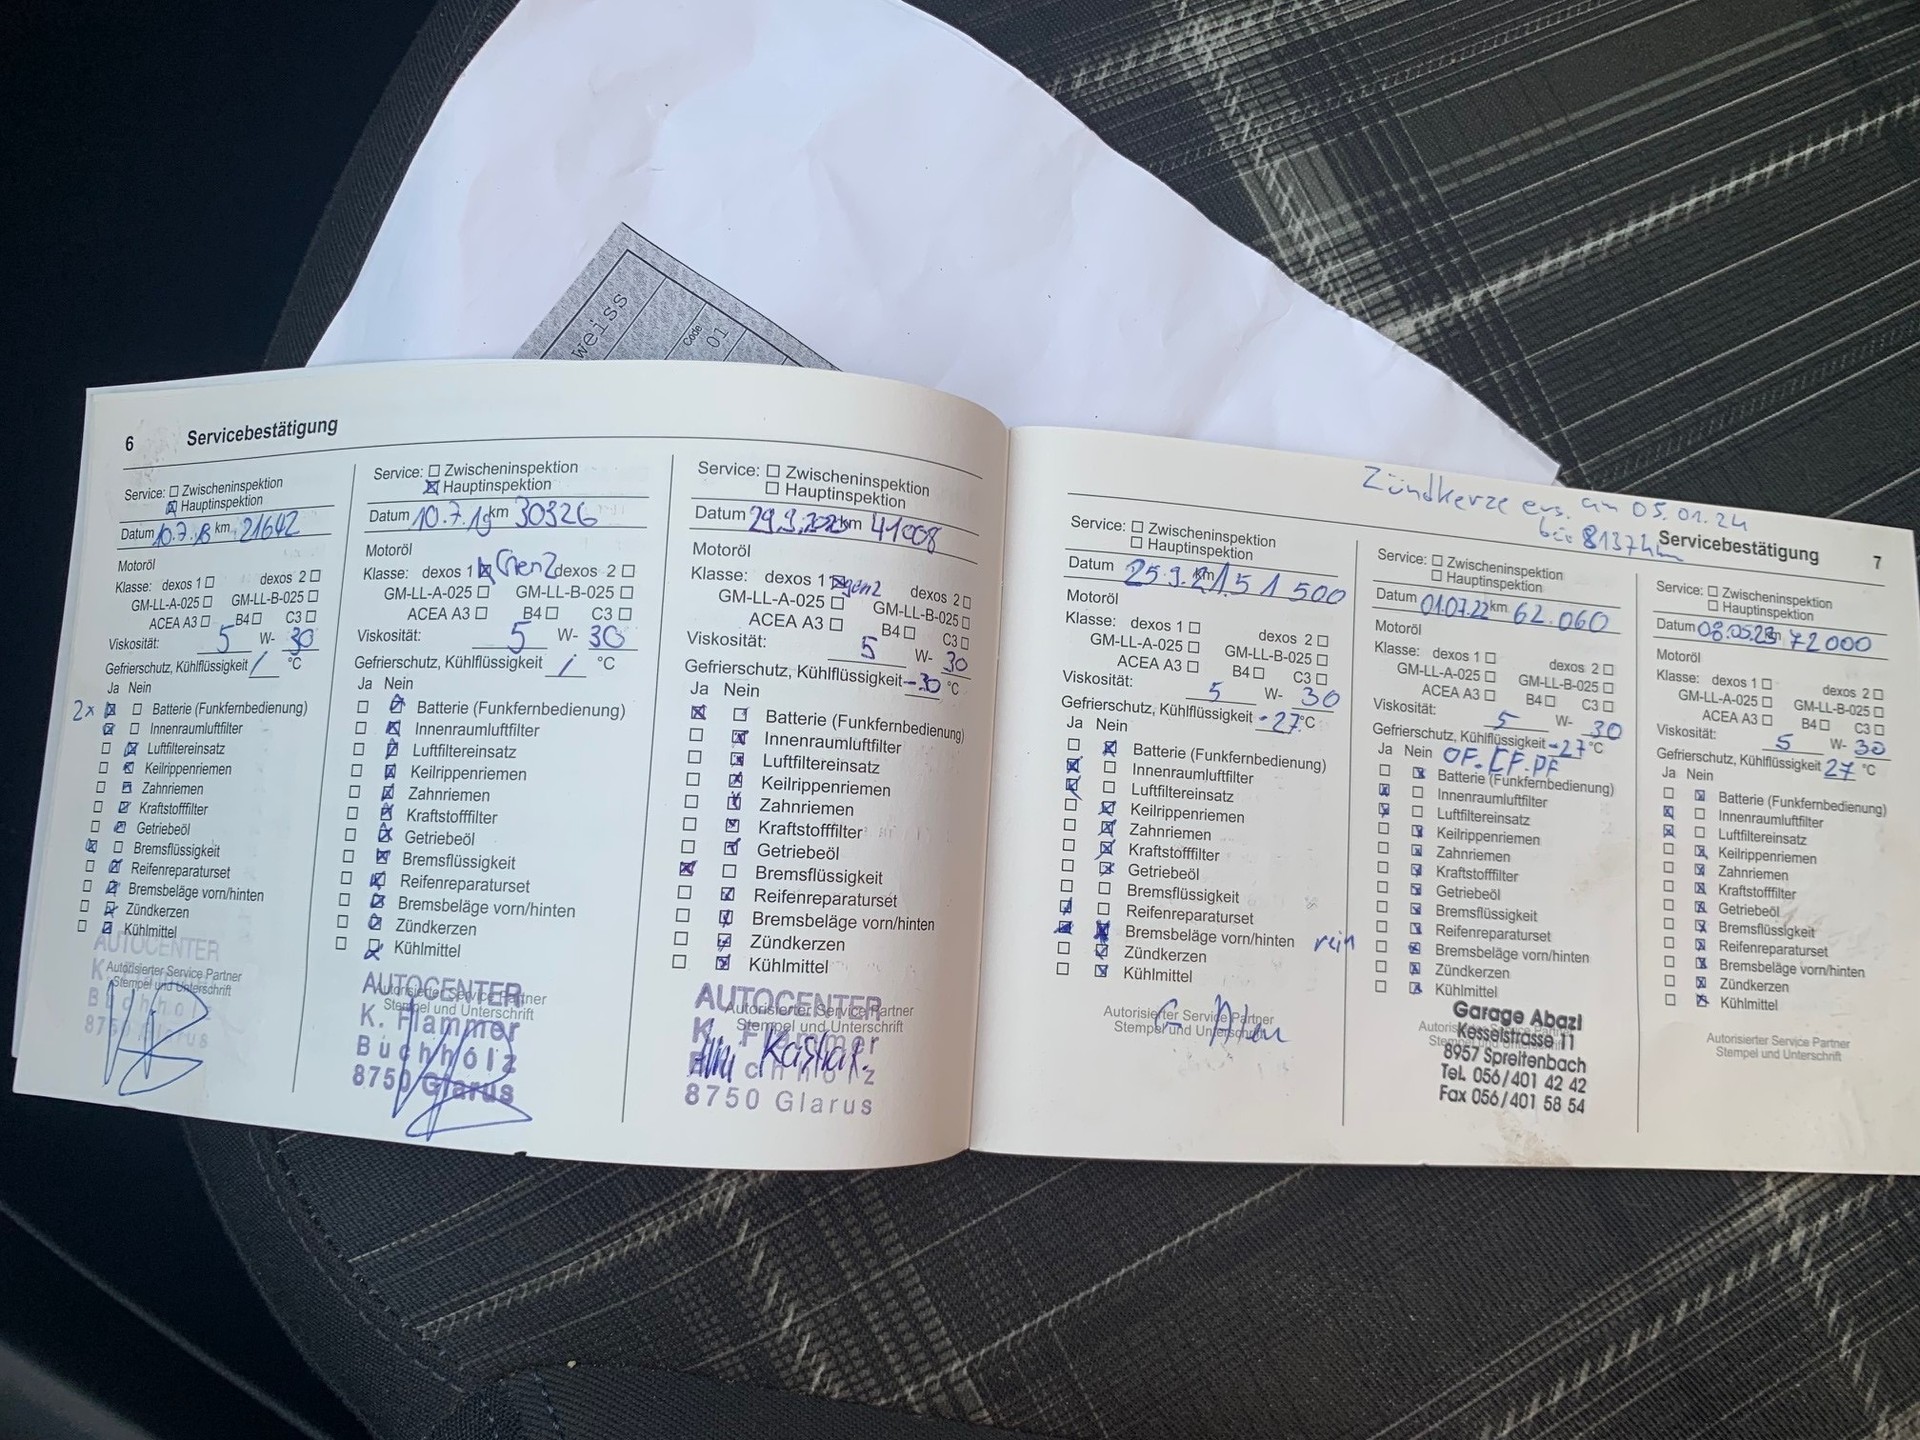 weiss
Code
01
6 Servicebestätigung
Service: ☐ Zwischeninspektion
☒ Hauptinspektion
Datum 10.7.18 km 21642
Motoröl
Klasse: dexos 1 ☐ dexos 2 ☐
GM-LL-A-025 ☐ GM-LL-B-025 ☐
ACEA A3 ☐ B4 ☐ C3 ☐
Viskosität: 5 W- 30
Gefrierschutz, Kühlflüssigkeit / °C
Ja Nein
2x ☒ ☐ Batterie (Funkfernbedienung)
☒ ☐ Innenraumluftfilter
☐ ☒ Luftfiltereinsatz
☐ ☒ Keilrippenriemen
☐ ☒ Zahnriemen
☐ ☒ Kraftstofffilter
☐ ☒ Getriebeöl
☒ ☐ Bremsflüssigkeit
☐ ☒ Reifenreparaturset
☐ ☒ Bremsbeläge vorn/hinten
☐ ☒ Zündkerzen
☐ ☒ Kühlmittel
AUTOCENTER
Autorisierter Service Partner
Stempel und Unterschrift
Buchholz
8750 Glarus
Service: ☐ Zwischeninspektion
☒ Hauptinspektion
Datum 10.7.19 km 30326
Motoröl
Klasse: dexos 1 ☒ Gen2 dexos 2 ☐
GM-LL-A-025 ☐ GM-LL-B-025 ☐
ACEA A3 ☐ B4 ☐ C3 ☐
Viskosität: 5 W- 30
Gefrierschutz, Kühlflüssigkeit / °C
Ja Nein
☐ ☒ Batterie (Funkfernbedienung)
☐ ☒ Innenraumluftfilter
☐ ☒ Luftfiltereinsatz
☐ ☒ Keilrippenriemen
☐ ☒ Zahnriemen
☐ ☒ Kraftstofffilter
☐ ☒ Getriebeöl
☐ ☒ Bremsflüssigkeit
☐ ☒ Reifenreparaturset
☐ ☒ Bremsbeläge vorn/hinten
☐ ☒ Zündkerzen
☐ ☒ Kühlmittel
AUTOCENTER
Autorisierter Service Partner
Stempel und Unterschrift
K. Flammer
Buchholz
8750 Glarus
Service: ☐ Zwischeninspektion
☐ Hauptinspektion
Datum 29.9.2020 km 41008
Motoröl
Klasse: dexos 1 ☒ gen2 dexos 2 ☐
GM-LL-A-025 ☐ GM-LL-B-025 ☐
ACEA A3 ☐ B4 ☐ C3 ☐
Viskosität: 5 W- 30
Gefrierschutz, Kühlflüssigkeit -30 °C
Ja Nein
☒ ☐ Batterie (Funkfernbedienung)
☐ ☒ Innenraumluftfilter
☐ ☒ Luftfiltereinsatz
☐ ☒ Keilrippenriemen
☐ ☒ Zahnriemen
☐ ☒ Kraftstofffilter
☐ ☒ Getriebeöl
☒ ☐ Bremsflüssigkeit
☐ ☒ Reifenreparaturset
☐ ☒ Bremsbeläge vorn/hinten
☐ ☒ Zündkerzen
☐ ☒ Kühlmittel
AUTOCENTER
Autorisierter Service Partner
Stempel und Unterschrift
K. Flammer
Buchholz
8750 Glarus
Zündkerze ers. am 05.01.24
bei 81374km
Servicebestätigung 7
Service: ☐ Zwischeninspektion
☐ Hauptinspektion
Datum 25.9.21 km 51500
Motoröl
Klasse: dexos 1 ☐ dexos 2 ☐
GM-LL-A-025 ☐ GM-LL-B-025 ☐
ACEA A3 ☐ B4 ☐ C3 ☐
Viskosität: 5 W- 30
Gefrierschutz, Kühlflüssigkeit -27 °C
Ja Nein
☐ ☒ Batterie (Funkfernbedienung)
☒ ☐ Innenraumluftfilter
☒ ☐ Luftfiltereinsatz
☐ ☒ Keilrippenriemen
☐ ☒ Zahnriemen
☐ ☒ Kraftstofffilter
☐ ☒ Getriebeöl
☐ ☐ Bremsflüssigkeit
☒ ☐ Reifenreparaturset
☒ ☒ Bremsbeläge vorn/hinten rein
☐ ☒ Zündkerzen
☐ ☒ Kühlmittel
Autorisierter Service Partner
Stempel und Unterschrift
Service: ☐ Zwischeninspektion
☐ Hauptinspektion
Datum 01.07.22 km 62.060
Motoröl
Klasse: dexos 1 ☐ dexos 2 ☐
GM-LL-A-025 ☐ GM-LL-B-025 ☐
ACEA A3 ☐ B4 ☐ C3 ☐
Viskosität: 5 W- 30
Gefrierschutz, Kühlflüssigkeit -27 °C
Ja Nein OF. LF. PF
☐ ☒ Batterie (Funkfernbedienung)
☒ ☐ Innenraumluftfilter
☒ ☐ Luftfiltereinsatz
☐ ☒ Keilrippenriemen
☐ ☒ Zahnriemen
☐ ☒ Kraftstofffilter
☐ ☒ Getriebeöl
☐ ☒ Bremsflüssigkeit
☐ ☒ Reifenreparaturset
☐ ☒ Bremsbeläge vorn/hinten
☐ ☒ Zündkerzen
☐ ☒ Kühlmittel
Garage Abazi
Autorisierter Service Partner
Kesselstrasse 11
8957 Spreitenbach
Tel. 056/401 42 42
Fax 056/401 58 54
Service: ☐ Zwischeninspektion
☐ Hauptinspektion
Datum 08.05.23 km 72000
Motoröl
Klasse: dexos 1 ☐ dexos 2 ☐
GM-LL-A-025 ☐ GM-LL-B-025 ☐
ACEA A3 ☐ B4 ☐ C3 ☐
Viskosität: 5 W- 30
Gefrierschutz, Kühlflüssigkeit 27 °C
Ja Nein
☐ ☒ Batterie (Funkfernbedienung)
☒ ☐ Innenraumluftfilter
☒ ☐ Luftfiltereinsatz
☐ ☒ Keilrippenriemen
☐ ☒ Zahnriemen
☐ ☒ Kraftstofffilter
☐ ☒ Getriebeöl
☐ ☒ Bremsflüssigkeit
☐ ☒ Reifenreparaturset
☐ ☒ Bremsbeläge vorn/hinten
☐ ☒ Zündkerzen
☐ ☒ Kühlmittel
Autorisierter Service Partner
Stempel und Unterschrift